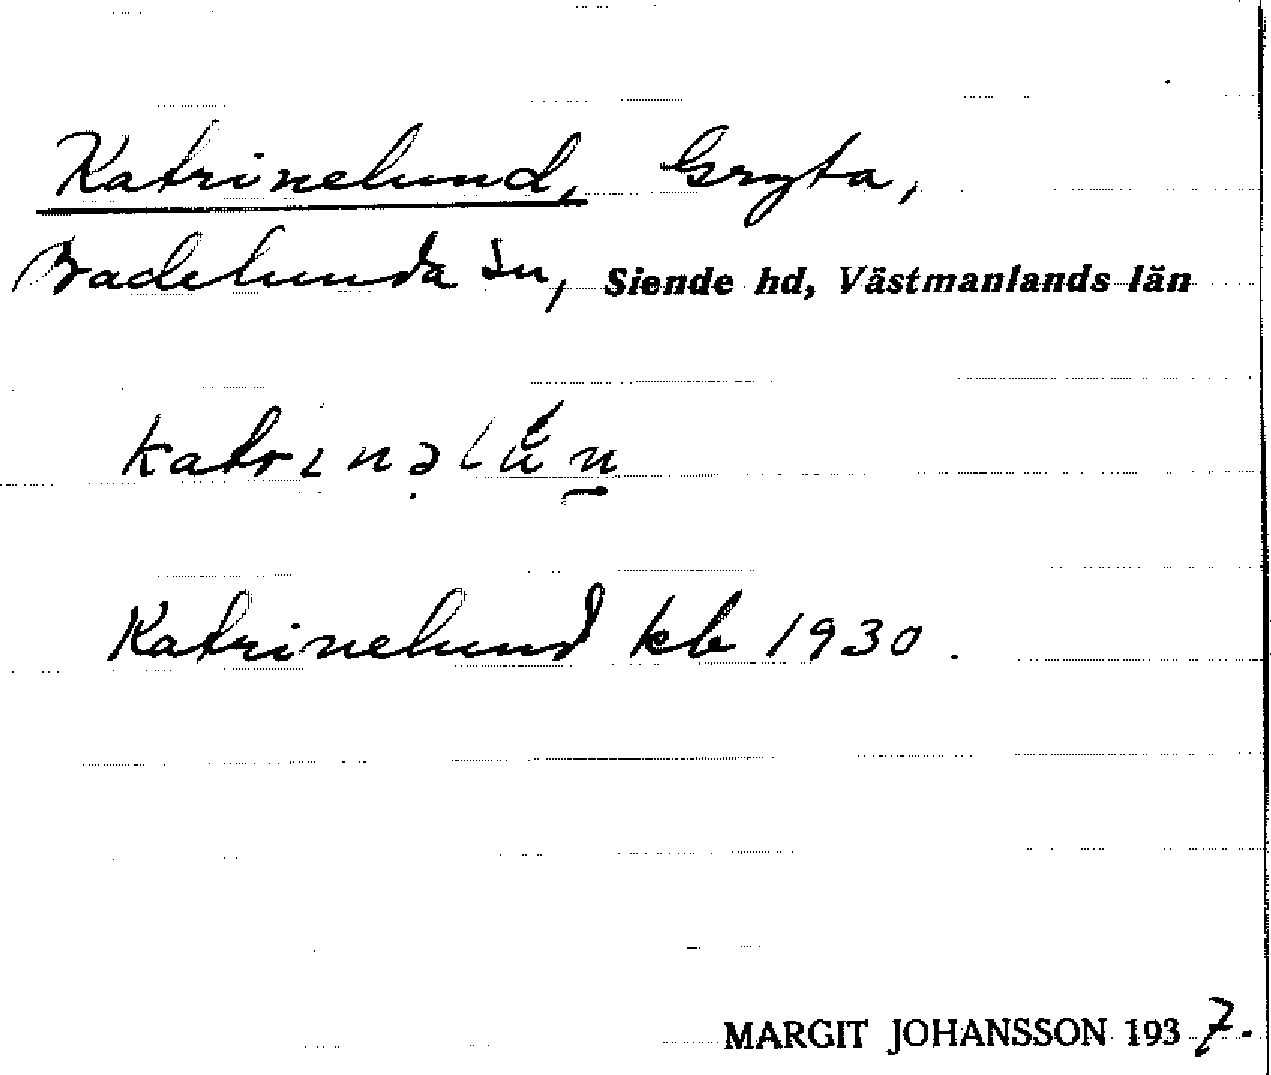 Katrinelund, Gryta,
Badelunda sn, Siende hd, Västmanlands län
Katrinelund kb 1930.
MARGIT JOHANSSON 1937.